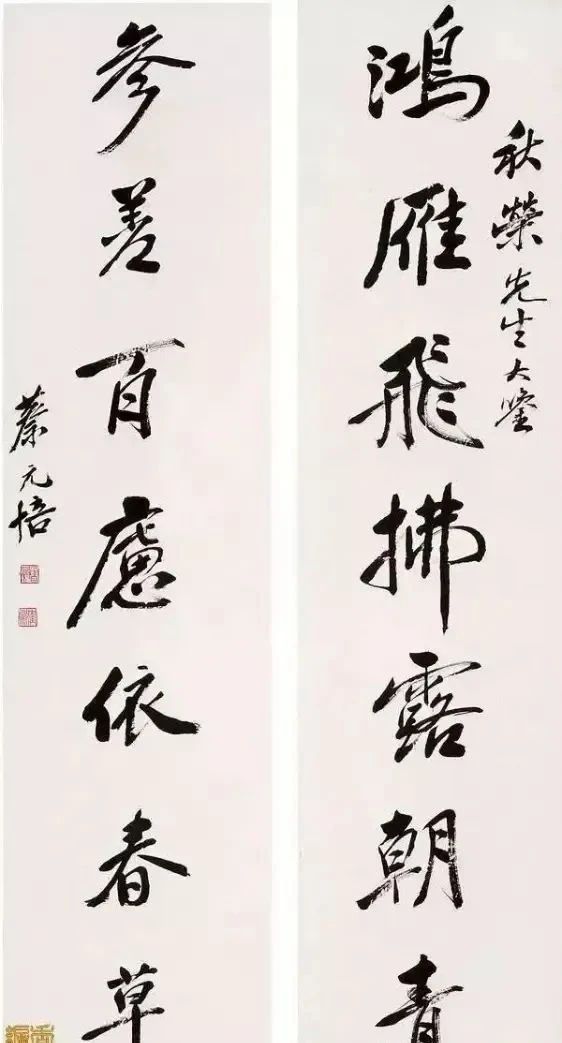 秋榮先生大鑒
鴻雁飛拂露朝青
参差百慮依春草
蔡元培